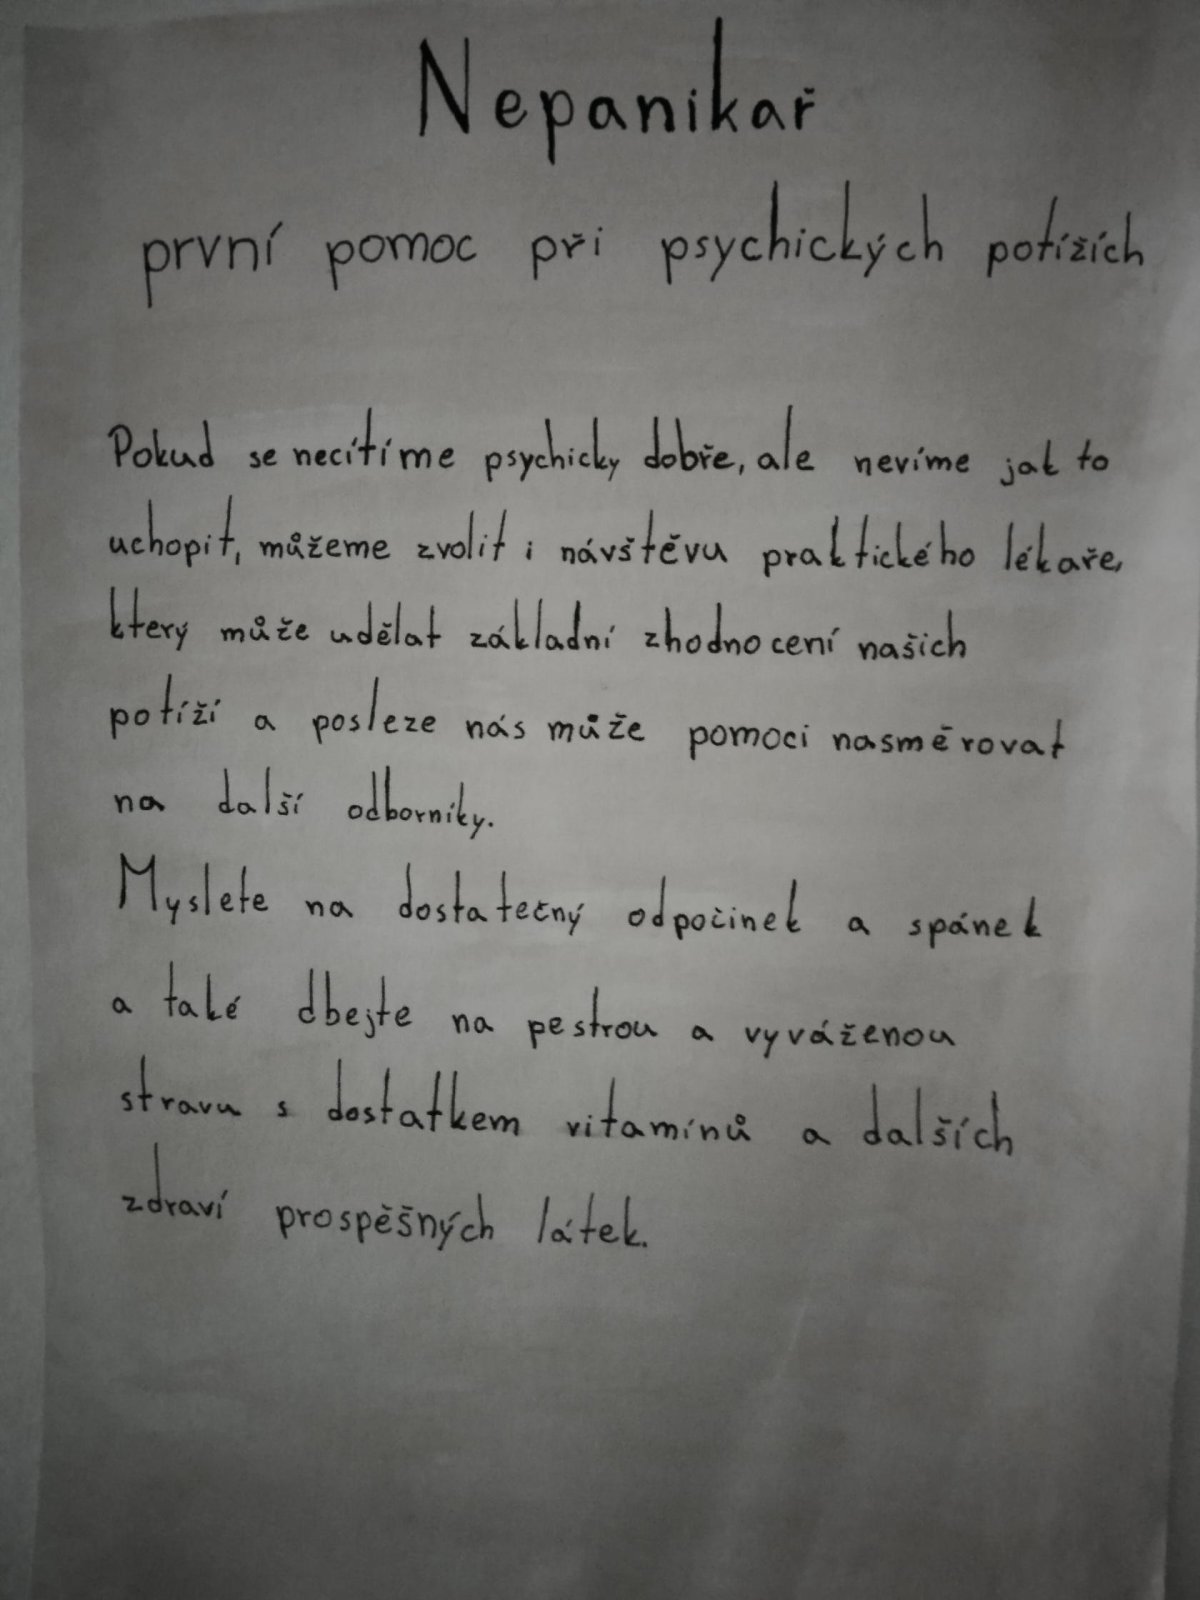 Nepanikař
první pomoc při psychických potížích
Pokud se necítíme psychicky dobře, ale nevíme jak to
uchopit, můžeme zvolit i návštěvu praktického lékaře,
který může udělat základní zhodnocení našich
potíží a posleze nás může pomoci nasměrovat
na další odborníky.
Myslete na dostatečný odpočinek a spánek
a také dbejte na pestrou a vyváženou
stravu s dostatkem vitamínů a dalších
zdraví prospěšných látek.